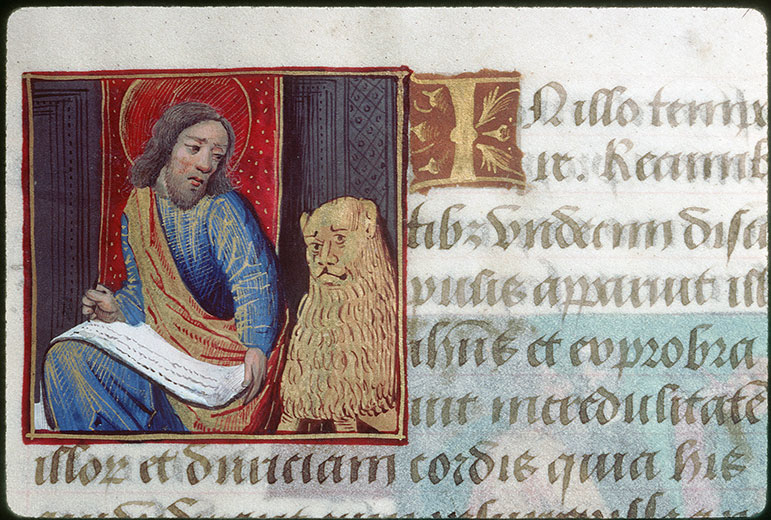 IN illo tempo
re. Recumb
tibꝫ vndecim disci
pulis apparuit ill
ihūs et exprobra
uit incredulitatē
illoꝝ et duriciam cordis quia his